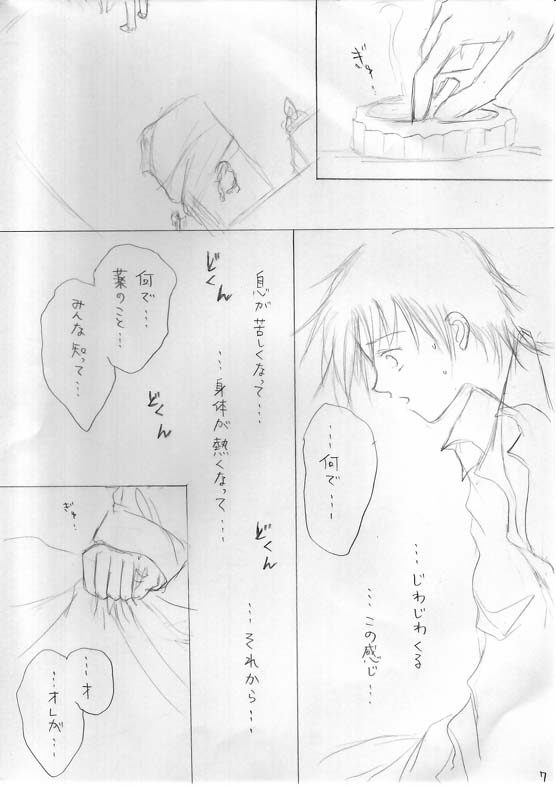 ぎゅ…
…何で…
…じわじわくる
…この感じ…
息が苦しくなって…
…身体が熱くなって…
…それから…
どくん
どくん
どくん
何で…
薬のこと…
みんな知って…
ぎゅ…
…オ
…オレが…
7